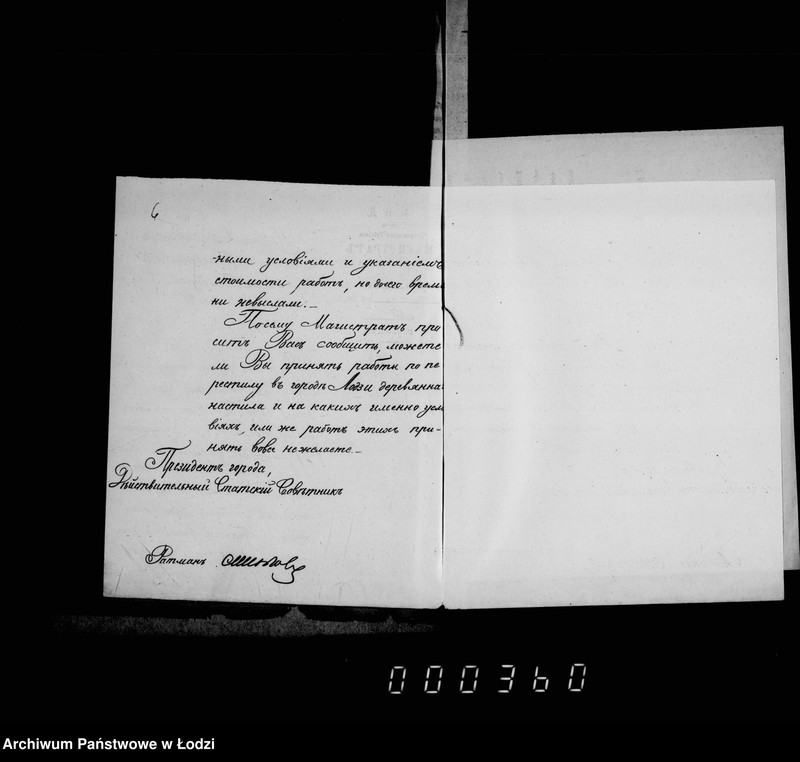 6
-ными условіями и указаніемъ
стоимости работъ, но до сего време
ни не выслали. —
Посему Магистратъ про
ситъ Васъ сообщить, можете
ли Вы принять работы по пе
рестилу въ городѣ Лодзи деревянна
настила и на какихъ именно усло
віяхъ, или же работъ этихъ при-
нять вовсе не желаете. —
Президентъ города,
Дѣйствительный Статскій Совѣтникъ
Ратманъ
000360
Archiwum Państwowe w Łodzi